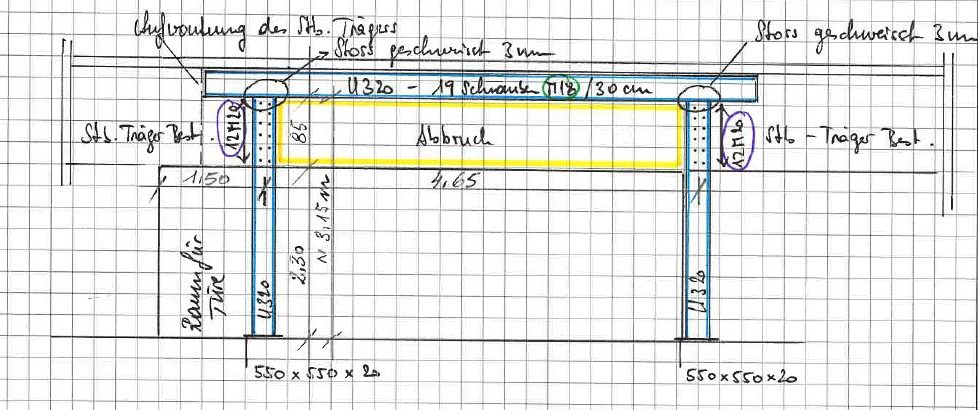 Aufrauhung des Stb. Trägers
Stoss geschweisst 3mm
Stoss geschweisst 3mm
U320 - 19 Schrauben M18 /30cm
Stb. Träger Best.
12M20
85
Abbruch
12M20
Stb - Träger Best.
1.50
4,65
Raum für
Türe
U320
2,30
~ 3,15m
U320
550 x 550 x 20
550x550x20